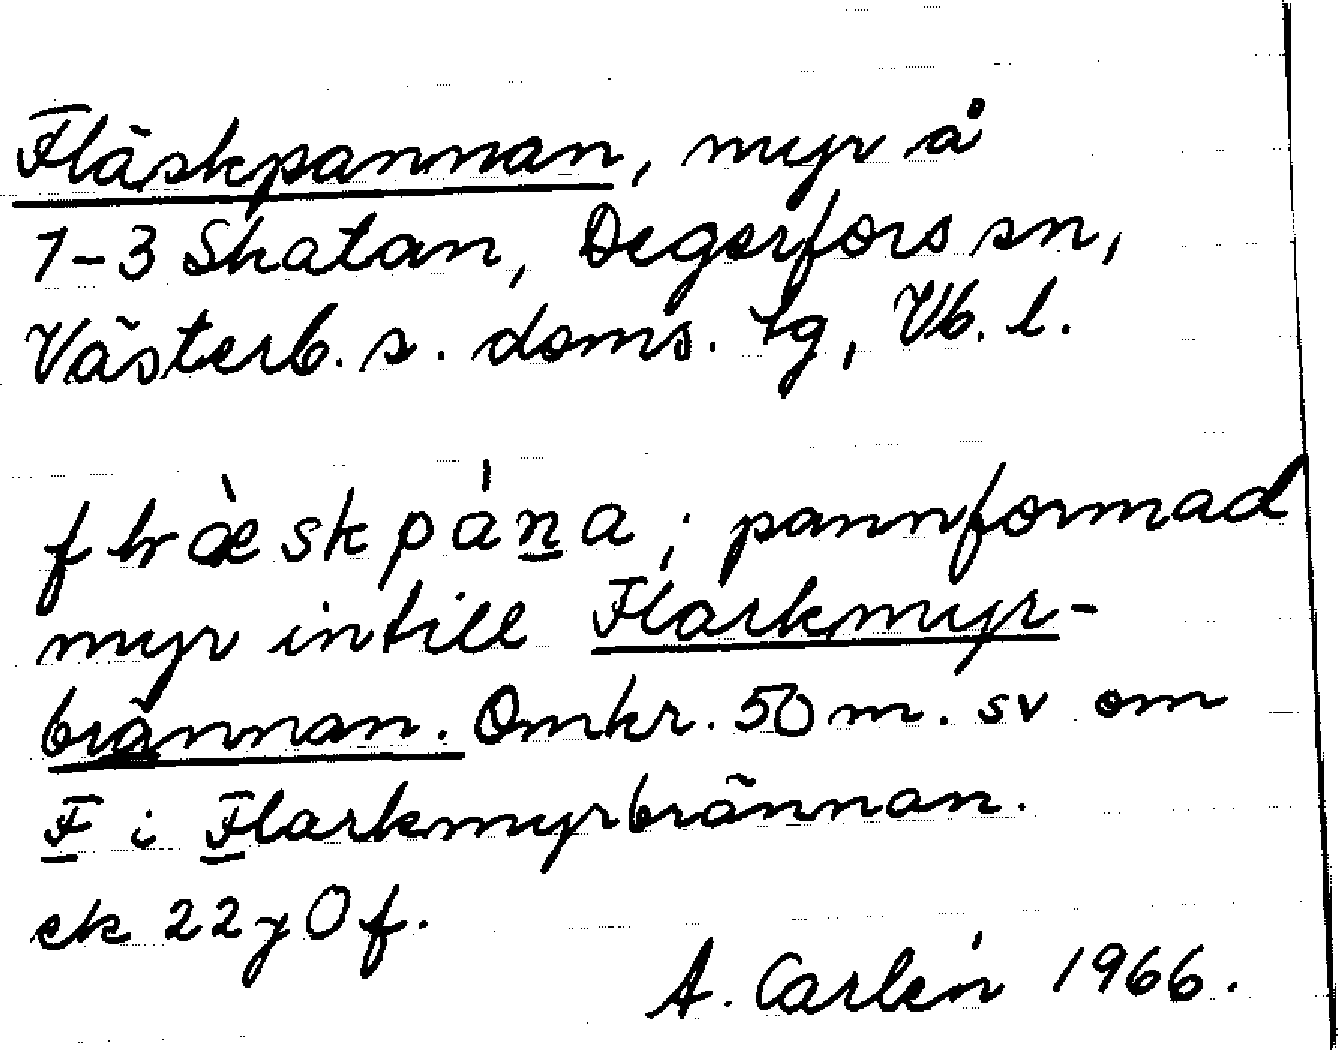 Fläskpannan, myr å
1-3 Skatan, Degerfors sn,
Västerb. s. doms. tg, Vb. l.
pannformad
myr intill Flarkmyr-
brännan. Omkr. 50 m. sv om
F i Flarkmyrbrännan.
ek 22 y 0 f.
A. Carlén 1966.